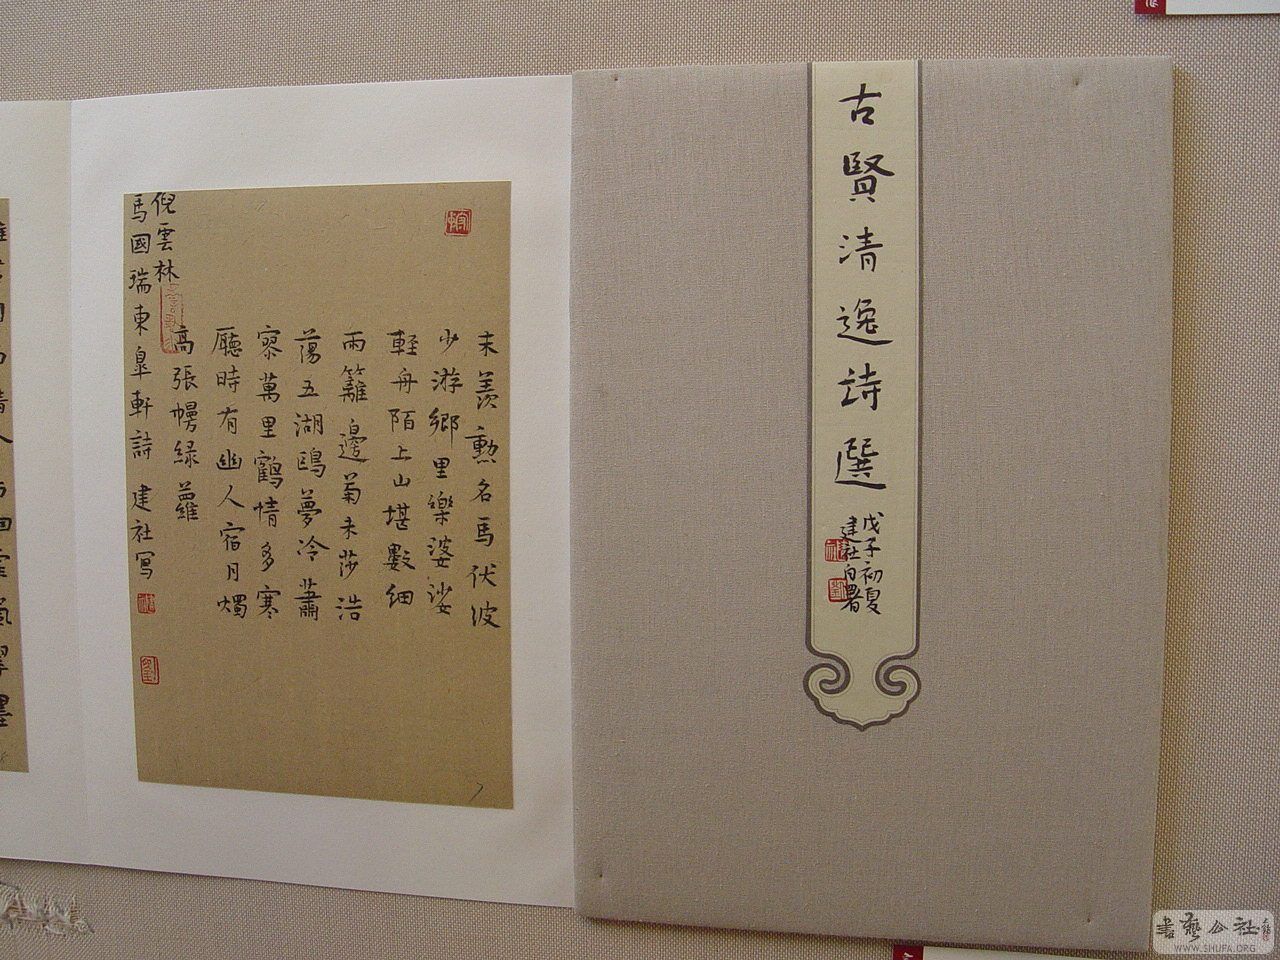 古賢清逸詩選
戊子初夏
建社自署
末羨勲名馬伏波
少游鄉里樂婆娑
輕舟陌上山堪數細
雨籬邊菊未莎浩
蕩五湖鷗夢冷蕭
寥萬里鶴情多寒
廳時有幽人宿月燭
高張幔綠蘿
倪雲林
馬國瑞東皐軒詩 建社寫
書藝公社
WWW.SHUFA.ORG